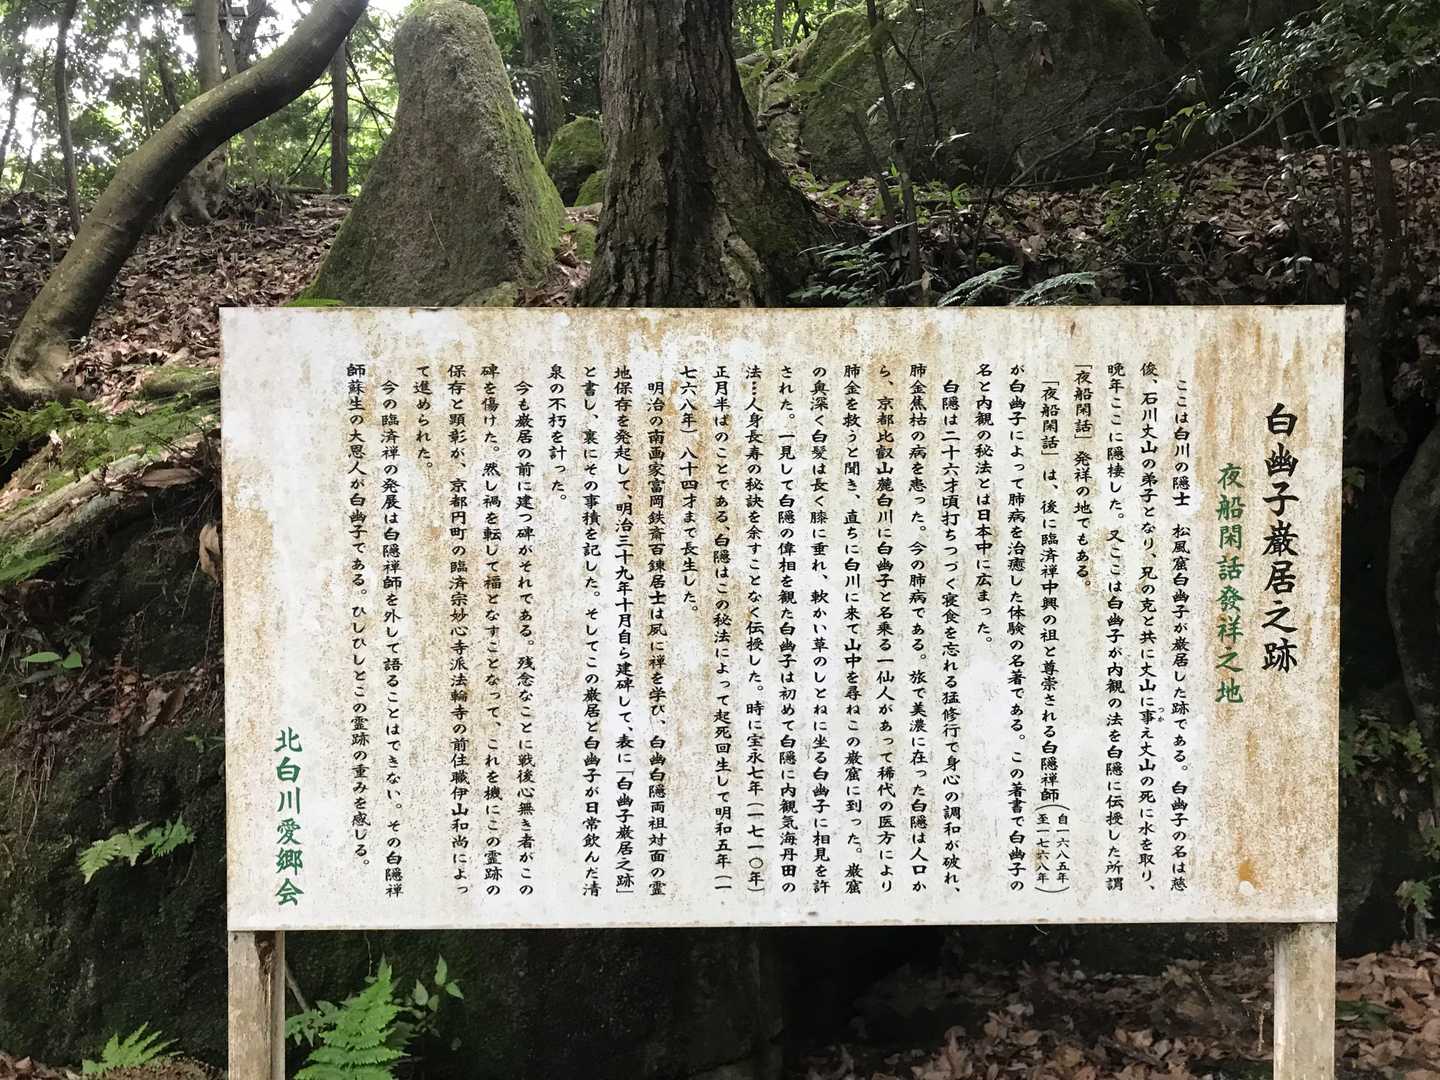 白幽子巌居之跡
夜船閑話發祥之地
ここは白川の隠士　松風窟白幽子が巌居した跡である。白幽子の名は慈
俊、石川丈山の弟子となり、兄の克と共に丈山に事え丈山の死に水を取り、
つか
晩年ここに隠棲した。又ここは白幽子が内観の法を白隠に伝授した所謂
「夜船閑話」発祥の地でもある。
「夜船閑話」は、後に臨済禅中興の祖と尊崇される白隠禅師（自一六八五年 至一七六八年）
が白幽子によって肺病を治癒した体験の名著である。この著書で白幽子の
名と内観の秘法とは日本中に広まった。
白隠は二十六才頃打ちつづく寝食を忘れる猛修行で身心の調和が破れ、
肺金焦枯の病を患った。今の肺病である。旅で美濃に在った白隠は人口か
ら、京都比叡山麓白川に白幽子と名乗る一仙人があって稀代の医方により
肺金を救うと聞き、直ちに白川に来て山中を尋ねこの巌窟に到った。巌窟
の奥深く白髪は長く膝に垂れ、軟かい草のしとねに坐る白幽子に相見を許
された。一見して白隠の偉相を観た白幽子は初めて白隠に内観気海丹田の
法…人身長寿の秘訣を余すことなく伝授した。時に宝永七年（一七一〇年）
正月半ばのことである、白隠はこの秘法によって起死回生して明和五年（一
七六八年）八十四才まで長生した。
明治の南画家富岡鉄斎百錬居士は夙に禅を学び、白幽白隠両祖対面の霊
地保存を発起して、明治三十九年十月自ら建碑して、表に「白幽子巌居之跡」
と書し、裏にその事積を記した。そしてこの巌居と白幽子が日常飲んだ清
泉の不朽を計った。
今も巌居の前に建つ碑がそれである。残念なことに戦後心無き者がこの
碑を傷けた。然し禍を転して福となすことなって、これを機にこの霊跡の
保存と顕彰が、京都円町の臨済宗妙心寺派法輪寺の前住職伊山和尚によっ
て進められた。
今の臨済禅の発展は白隠禅師を外して語ることはできない。その白隠禅
師蘇生の大恩人が白幽子である。ひしひしとこの霊跡の重みを感じる。
北白川愛郷会